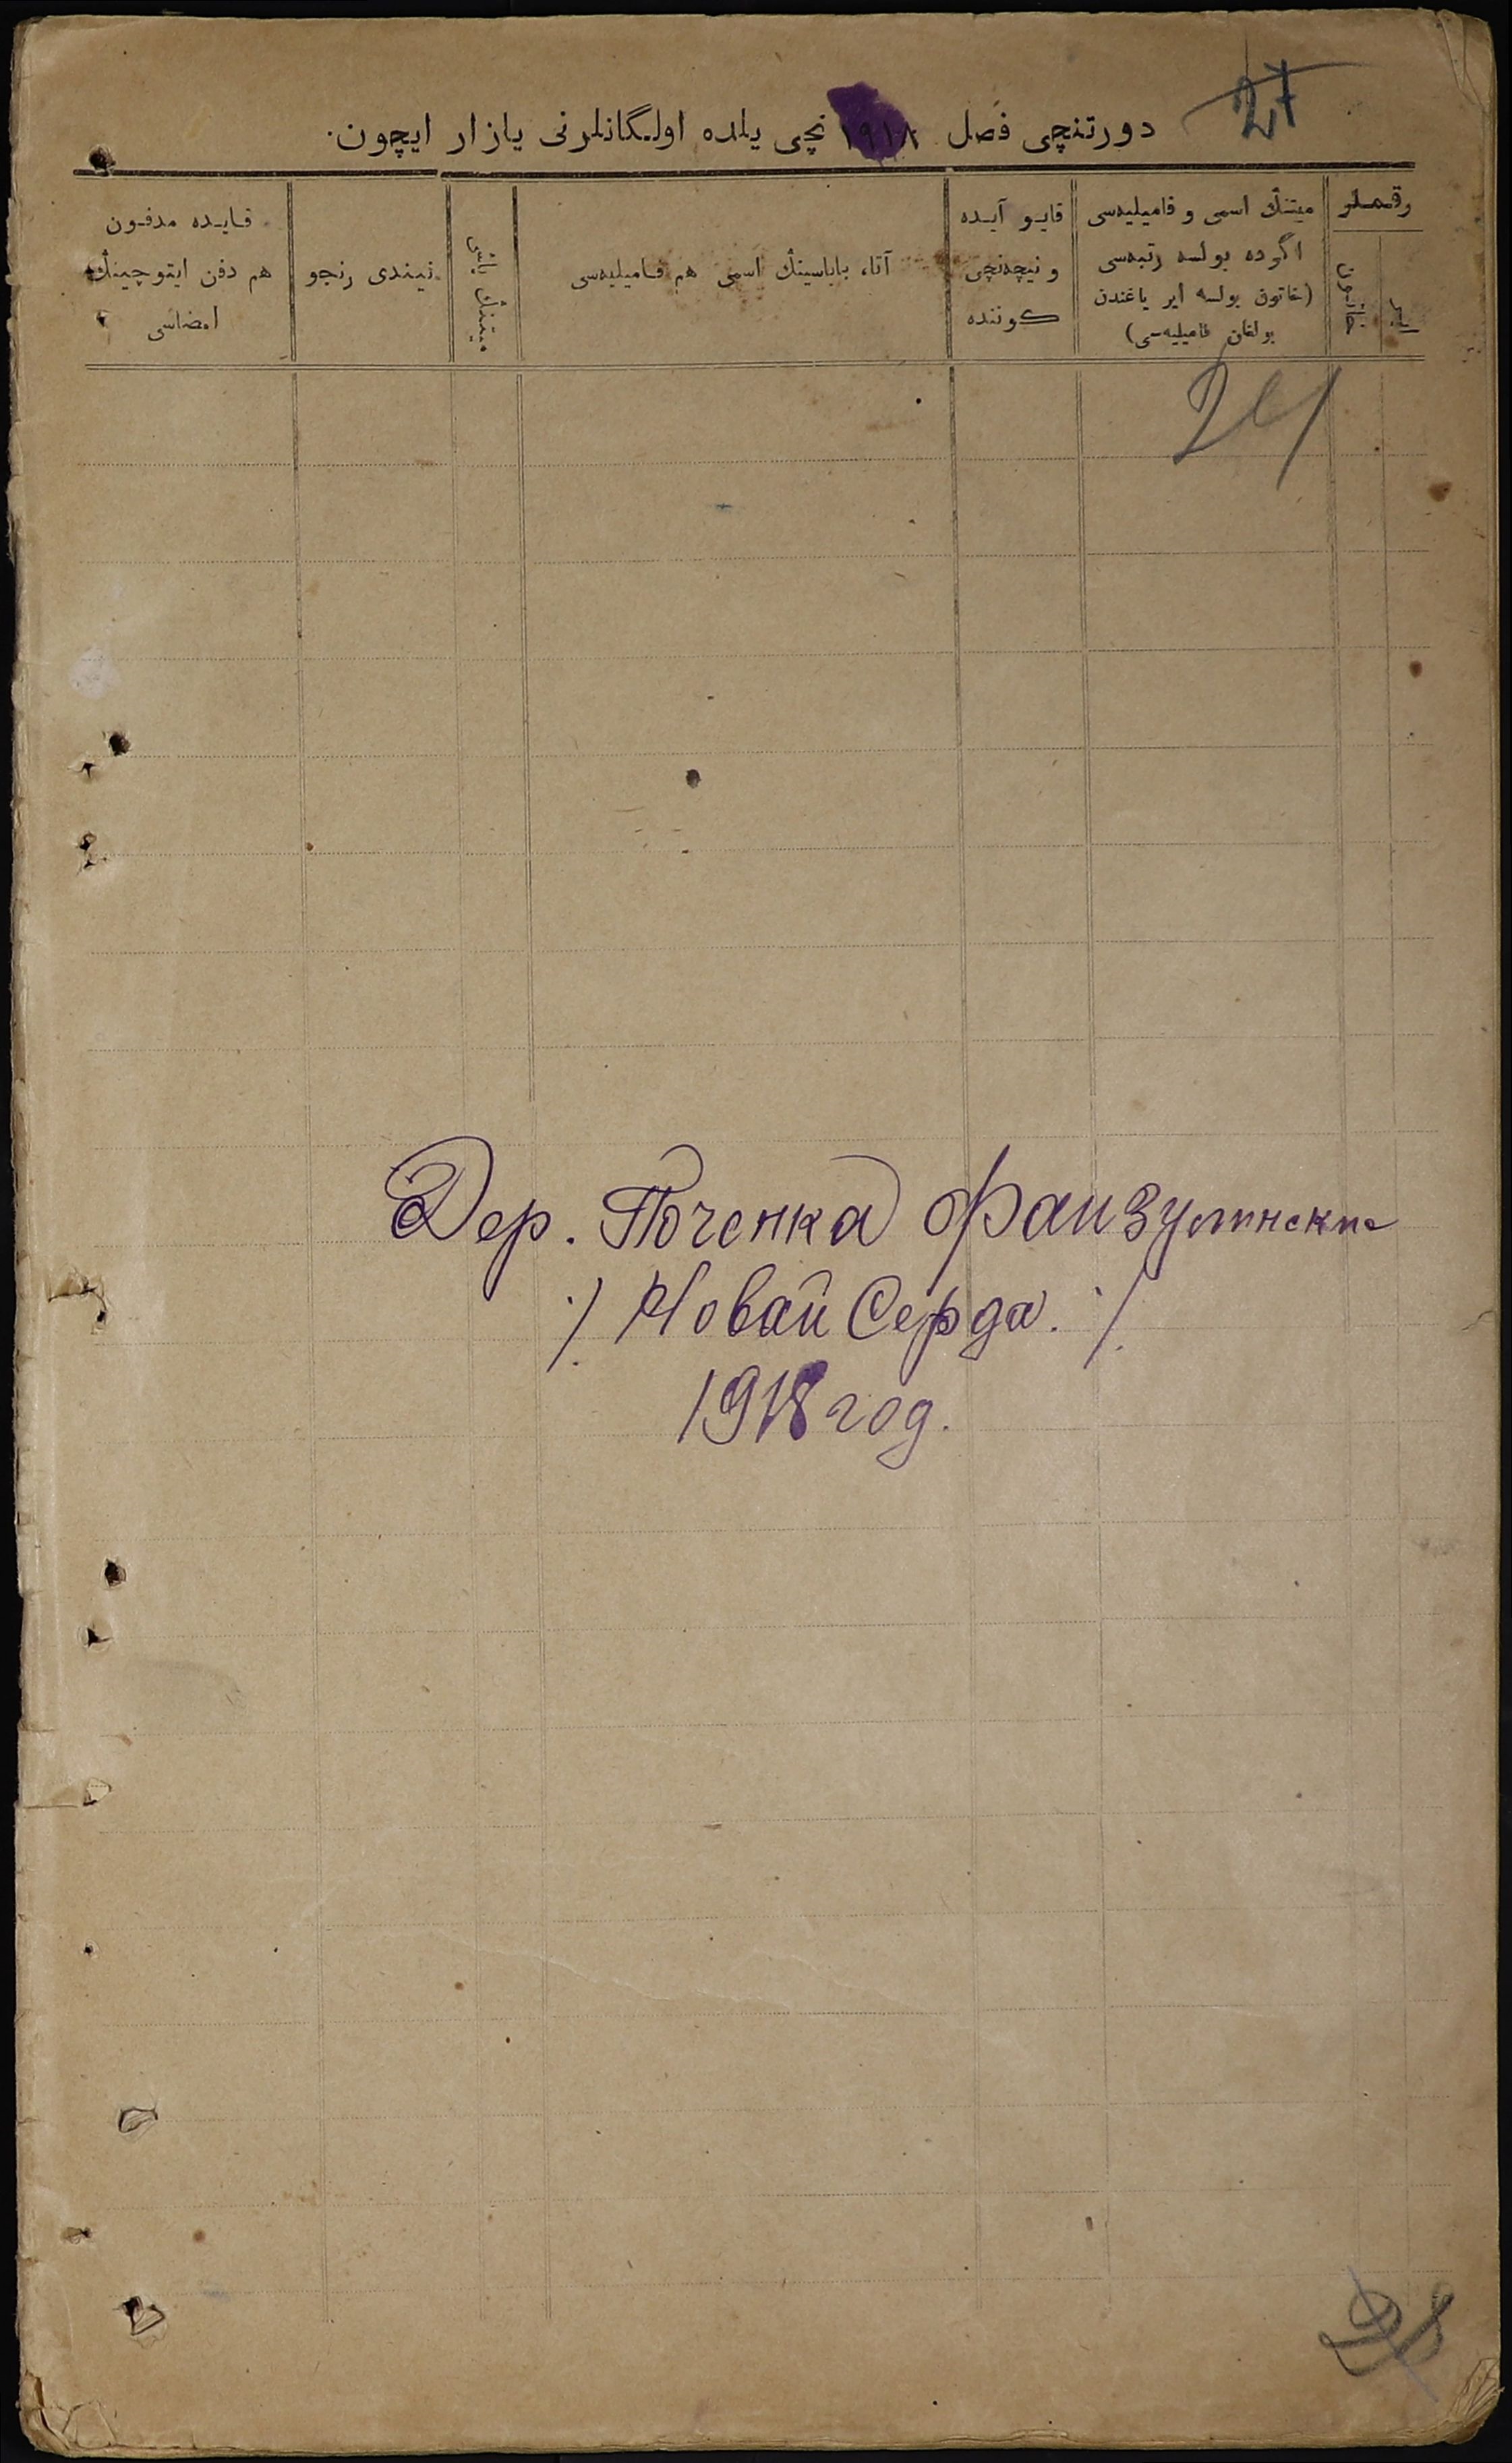 27
دورتنچی فصل ١٩١٨ نچی یلده اولگانلرنی یازار ایچون.
رقملر
میتنڭ اسمی و فامیلیه‌سی
اگرده بولسه رتبه‌سی
(خاتون بولسه ایر یاغندن
بولغان فامیلیه‌سی)
قایو آیده
و نیچه‌نچی
كوننده
آتا، باباسینڭ اسمی هم فامیلیه‌سی
میتنڭ یاشی
نیندی رنجو
قایده مدفون
هم دفن ایتوچینڭ
امضاسی
Дер. Поченка Фаизулинские
./. Новай Серда. ./.
1918 год.